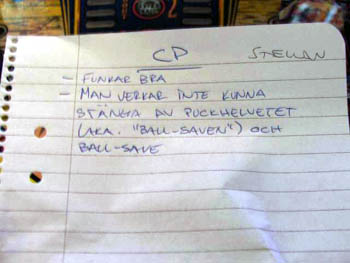 2
CP STELLAN
- FUNKAR BRA
- MAN VERKAR INTE KUNNA
STÄNGA AV PUCKHELVETET
(AKA. "BALL-SAVEN") OCH
BALL-SAVE